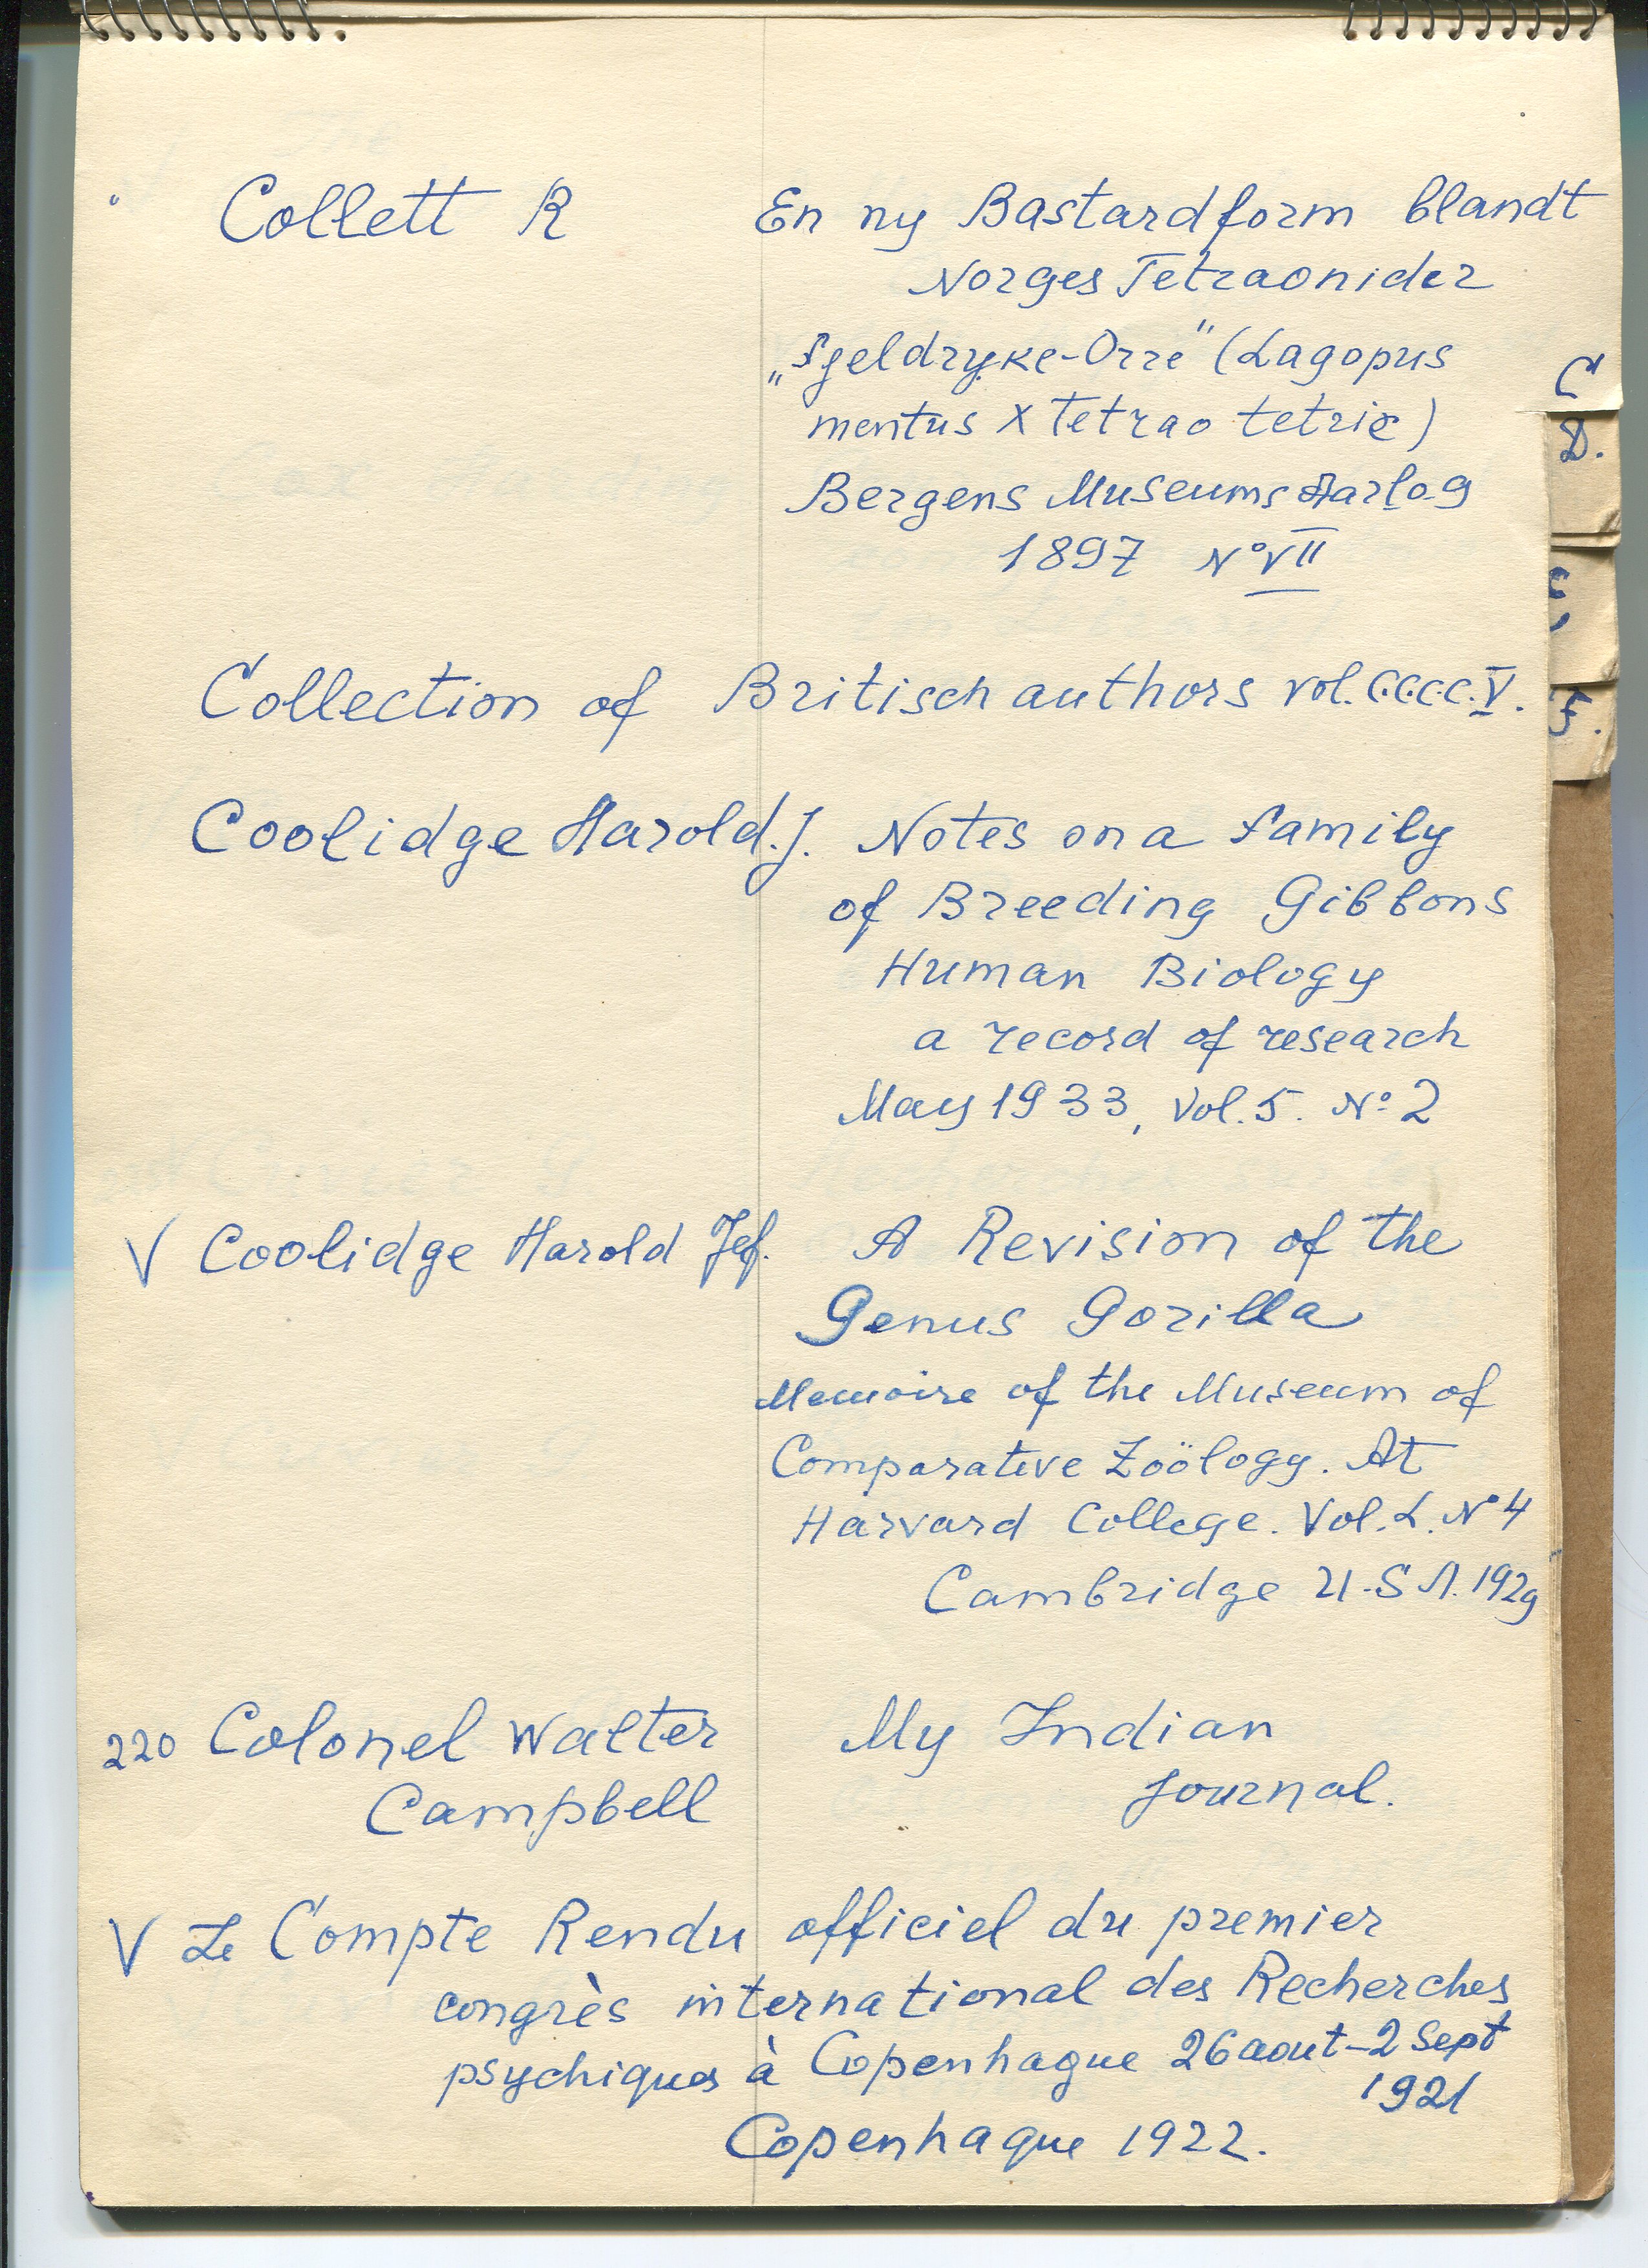 Collett R En ny Bastardform blandt
Norges Tetraonider
„Fjeldryke-Orre" (Lagopus
mentus X Tetrao tetrix)
Bergens Museums Aarlog
1897 N° VII
Collection of Britisch authors vol. C.C.C.C.V.
Coolidge Harold. J. Notes on a family
of Breeding Gibbons
Human Biology
a record of research
May 1933, Vol. 5. N° 2
V Coolidge Harold Jef. A Revision of the
Genus Gorilla
Memoire of the Museum of
Comparative Zoölogy. At
Harvard College. Vol. L. N° 4
Cambridge U.S A. 1929
220 Colonel Walter My Indian
Campbell Journal.
V Le Compte Rendu officiel du premier
congrès international des Recherches
psychiques à Copenhague 26 aout–2 Sept
1921
Copenhague 1922.
C
D.